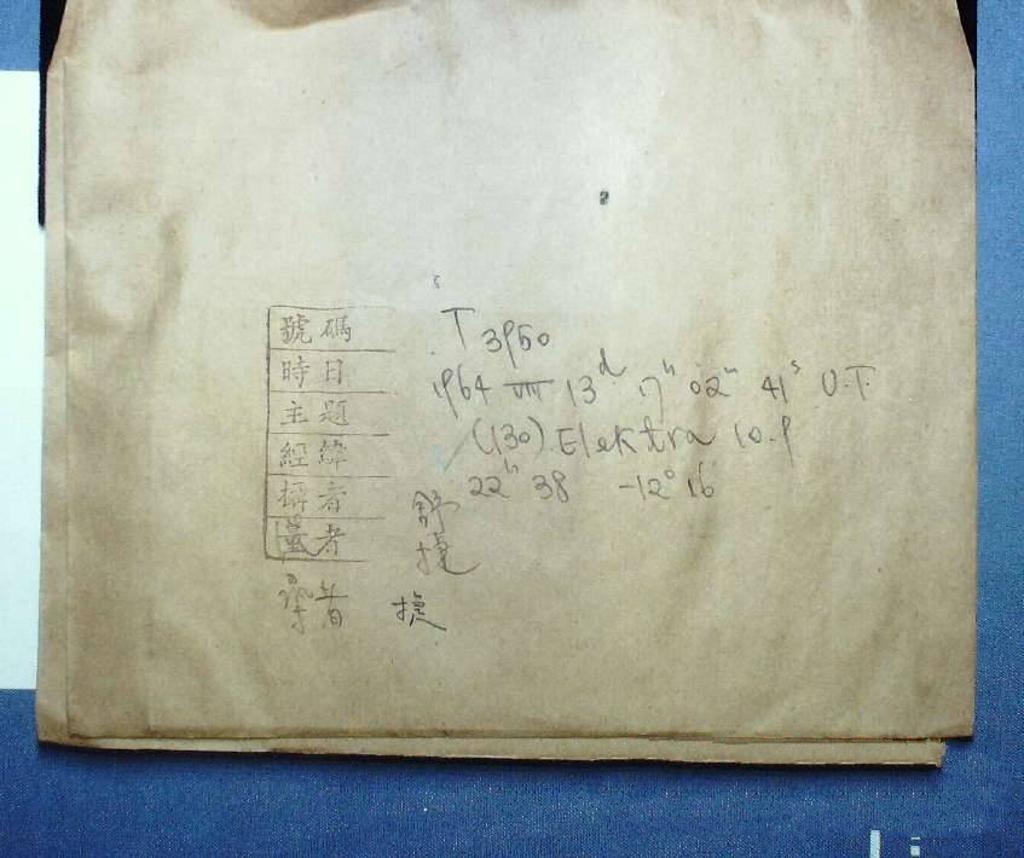 號碼 T 3950
時日 1964 VIII 13d 17h 02m 41s U.T.
主題 (130) Elektra 10.9
經緯 22h 38 -12° 16
攝者 舒
量者 捷
捷